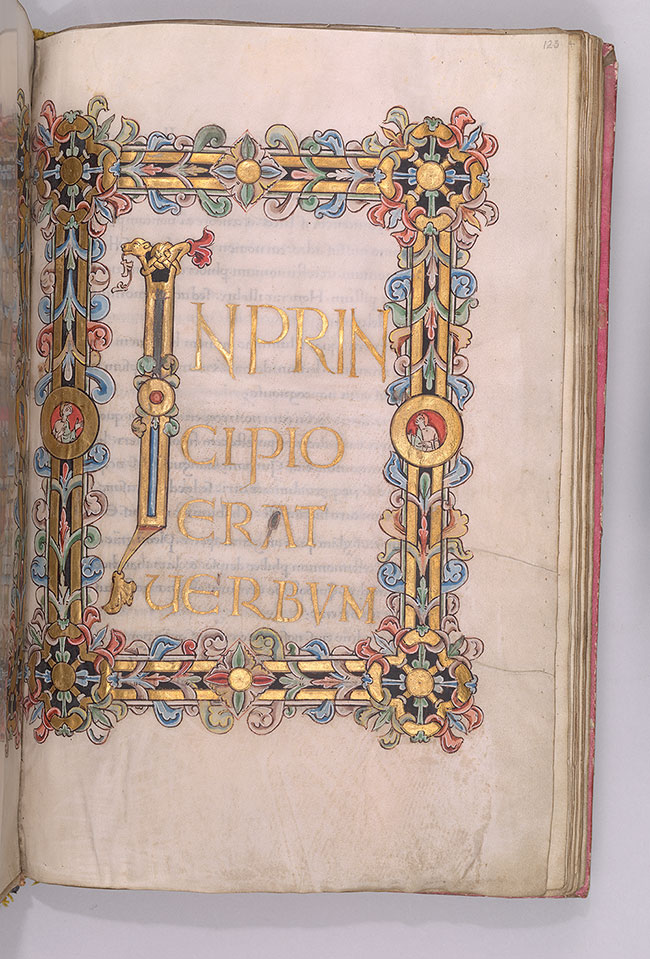 123
IN PRIN
CIPIO
ERAT
UERBVM